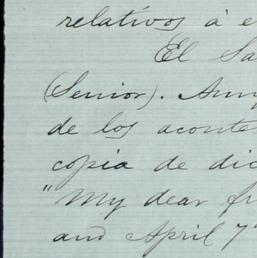 relativos á e
El Sa
(Senior). Aun
de los aconte
copia de dic
"My dear fr
and April 7